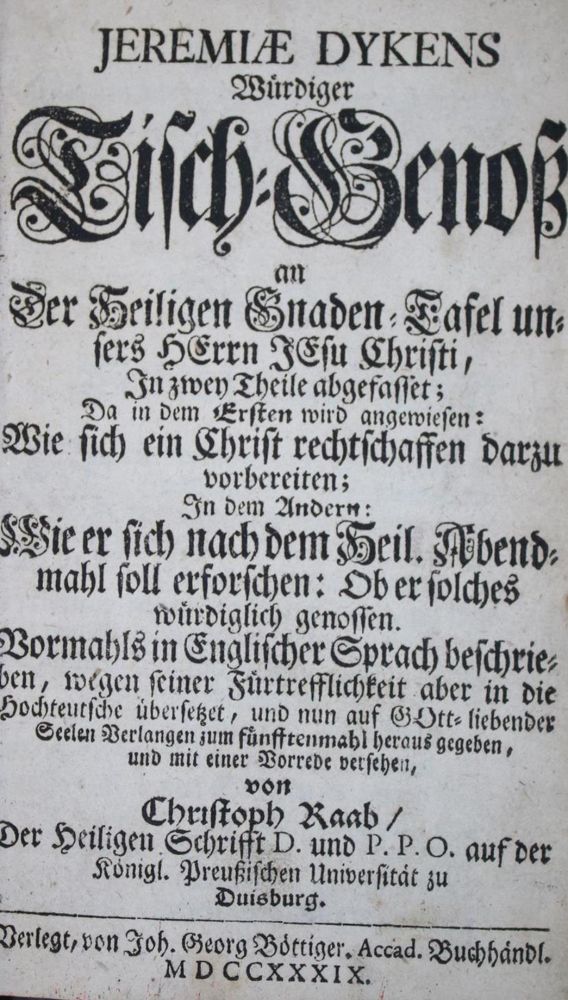 JEREMIÆ DYKENS
Würdiger
Tiſch-Genoß
an
Der Heiligen Gnaden-Tafel un-
ſers HErrn JEſu Chriſti,
In zwey Theile abgefaſſet;
Da in dem Erſten wird angewieſen:
Wie ſich ein Chriſt rechtſchaffen darzu
vorbereiten;
In dem Andern:
Wie er ſich nach dem Heil. Abend-
mahl ſoll erforſchen: Ob er ſolches
würdiglich genoſſen.
Vormahls in Engliſcher Sprach beſchrie-
ben, wegen ſeiner Fürtrefflichkeit aber in die
Hochteutſche überſetzet, und nun auf GOtt-liebender
Seelen Verlangen zum fünfftenmahl heraus gegeben,
und mit einer Vorrede verſehen,
von
Chriſtoph Raab/
Der Heiligen Schrifft D. und P. P. O. auf der
Königl. Preußiſchen Univerſität zu
Duisburg.
Verlegt, von Joh. Georg Böttiger. Accad. Buchhändl.
MDCCXXXIX.